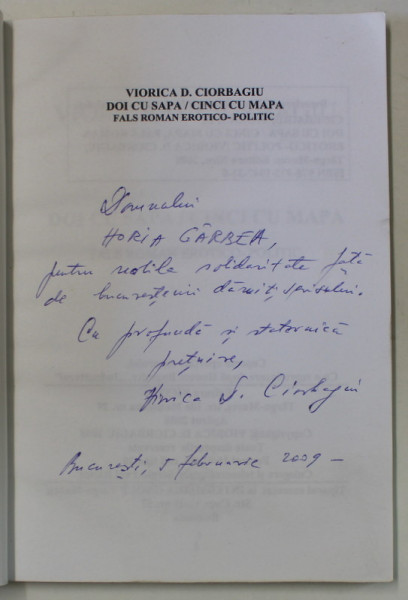 VIORICA D. CIORBAGIU
DOI CU SAPA / CINCI CU MAPA
FALS ROMAN EROTICO- POLITIC
Domnului
HORIA GÂRBEA,
pentru nobila solidaritate față
de bucureștenii dăruiți scrisului.
Cu profundă și statornică
prețuire,
Viorica D. Ciorbagiu
București, 5 februarie 2009 –